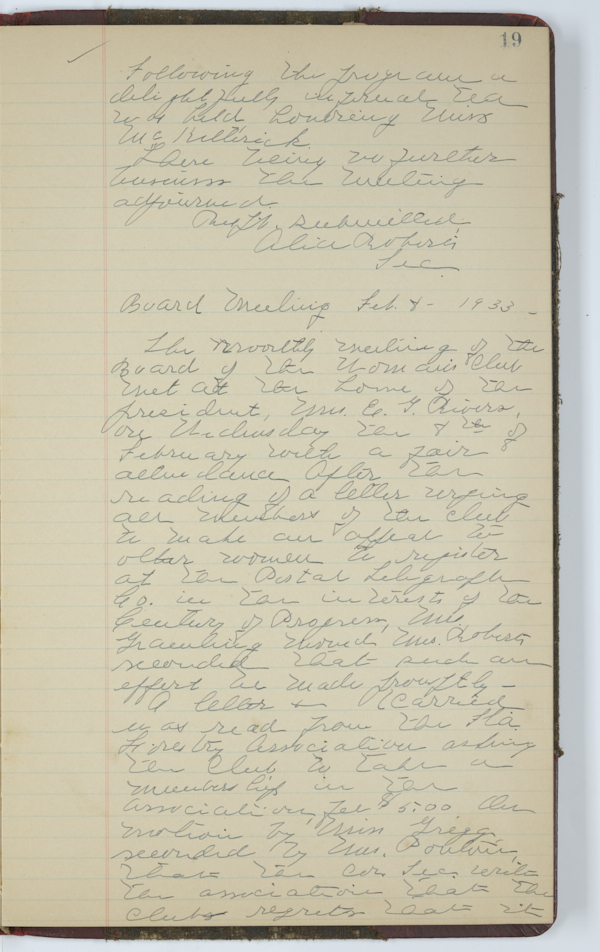 19
Following the program a
delightfully informal tea
was held honoring Miss
McKittrick.
There being no further
business the meeting
adjourned.
Respt. submitted,
Alice Roberts
Sec.
Board Meeting Feb. 8 - 1933 -
The monthly meeting of the
Board of the Woman's Club
met at the home of the
president, Mrs. E. G. Rivers,
on Wednesday the 8th of
February with a fair
attendance. After the
reading of a letter urging
all members of the club
to make an appeal to
other women to register
at the Postal Telegraph
Co. in the interests of the
Century of Progress, Mrs.
moved, Mrs. Roberts
seconded that such an
effort be made promptly -
A letter (Carried
was read from the Fla.
Forestry Association asking
the Club to take a
membership in the
association, fee $5.00. On
motion by Miss Gregg
seconded by Mrs.
that the Cor. Sec. write
the association that the
Club regrets that it